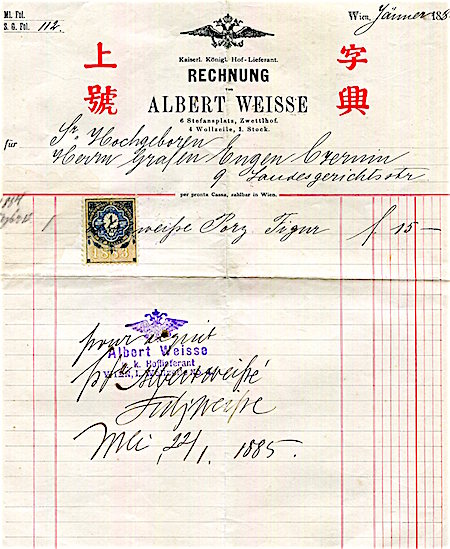 Ml. Fol.
S. G. Fol. 112.
Wien, Jänner 188
Kaiserl. Königl. Hof-Lieferant.
RECHNUNG
von
ALBERT WEISSE
6 Stefansplatz, Zwettlhof.
4 Wollzeile, 1. Stock.
上號
字興
für Sr. Hochgeboren
Herrn Grafen Eugen Czernin
9 Landesgerichtsstr
per pronta Cassa, zahlbar in Wien.
1 weiße Porz Figur f 15 —
1883
pour acquit
Albert Weisse
k. k. Hoflieferant
ppa Albert Weisse
Wien 22/1. 1885.